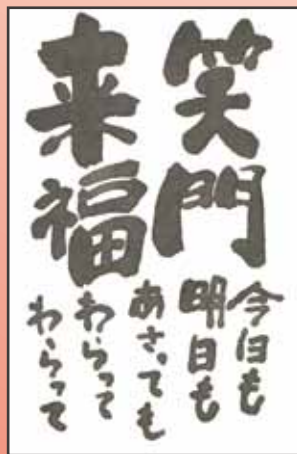 笑門
来福
今日も
明日も
あさっても
わらって
わらって